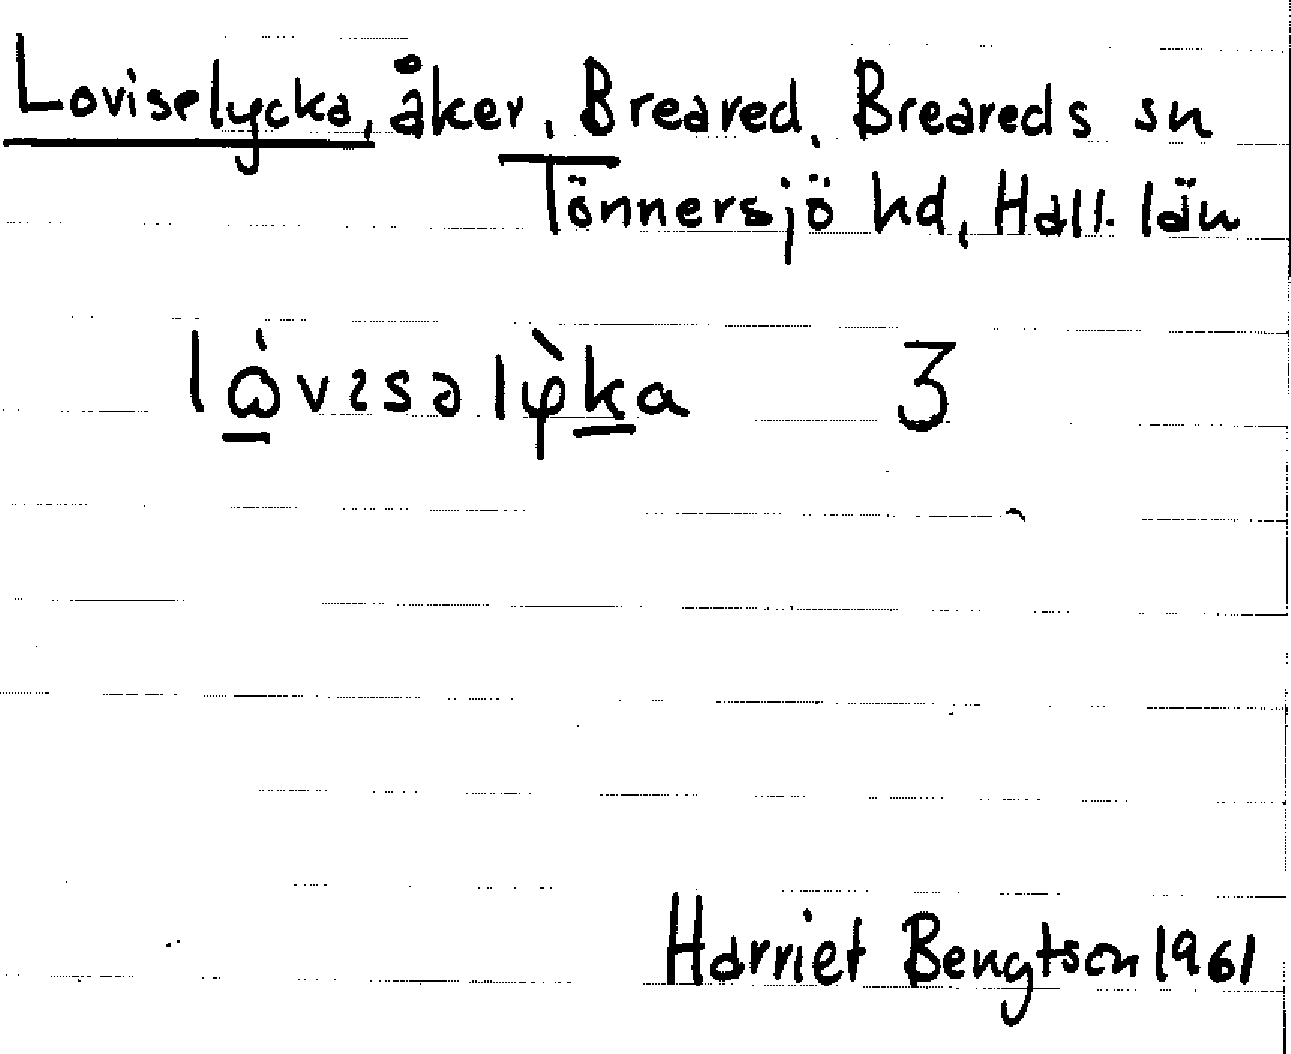 Loviselycka, åker, Breared, Breareds sn
Tönnersjö hd, Hall. län
lώ̲vɪsəlφ̀k̲a 3
Harriet Bengtson 1961